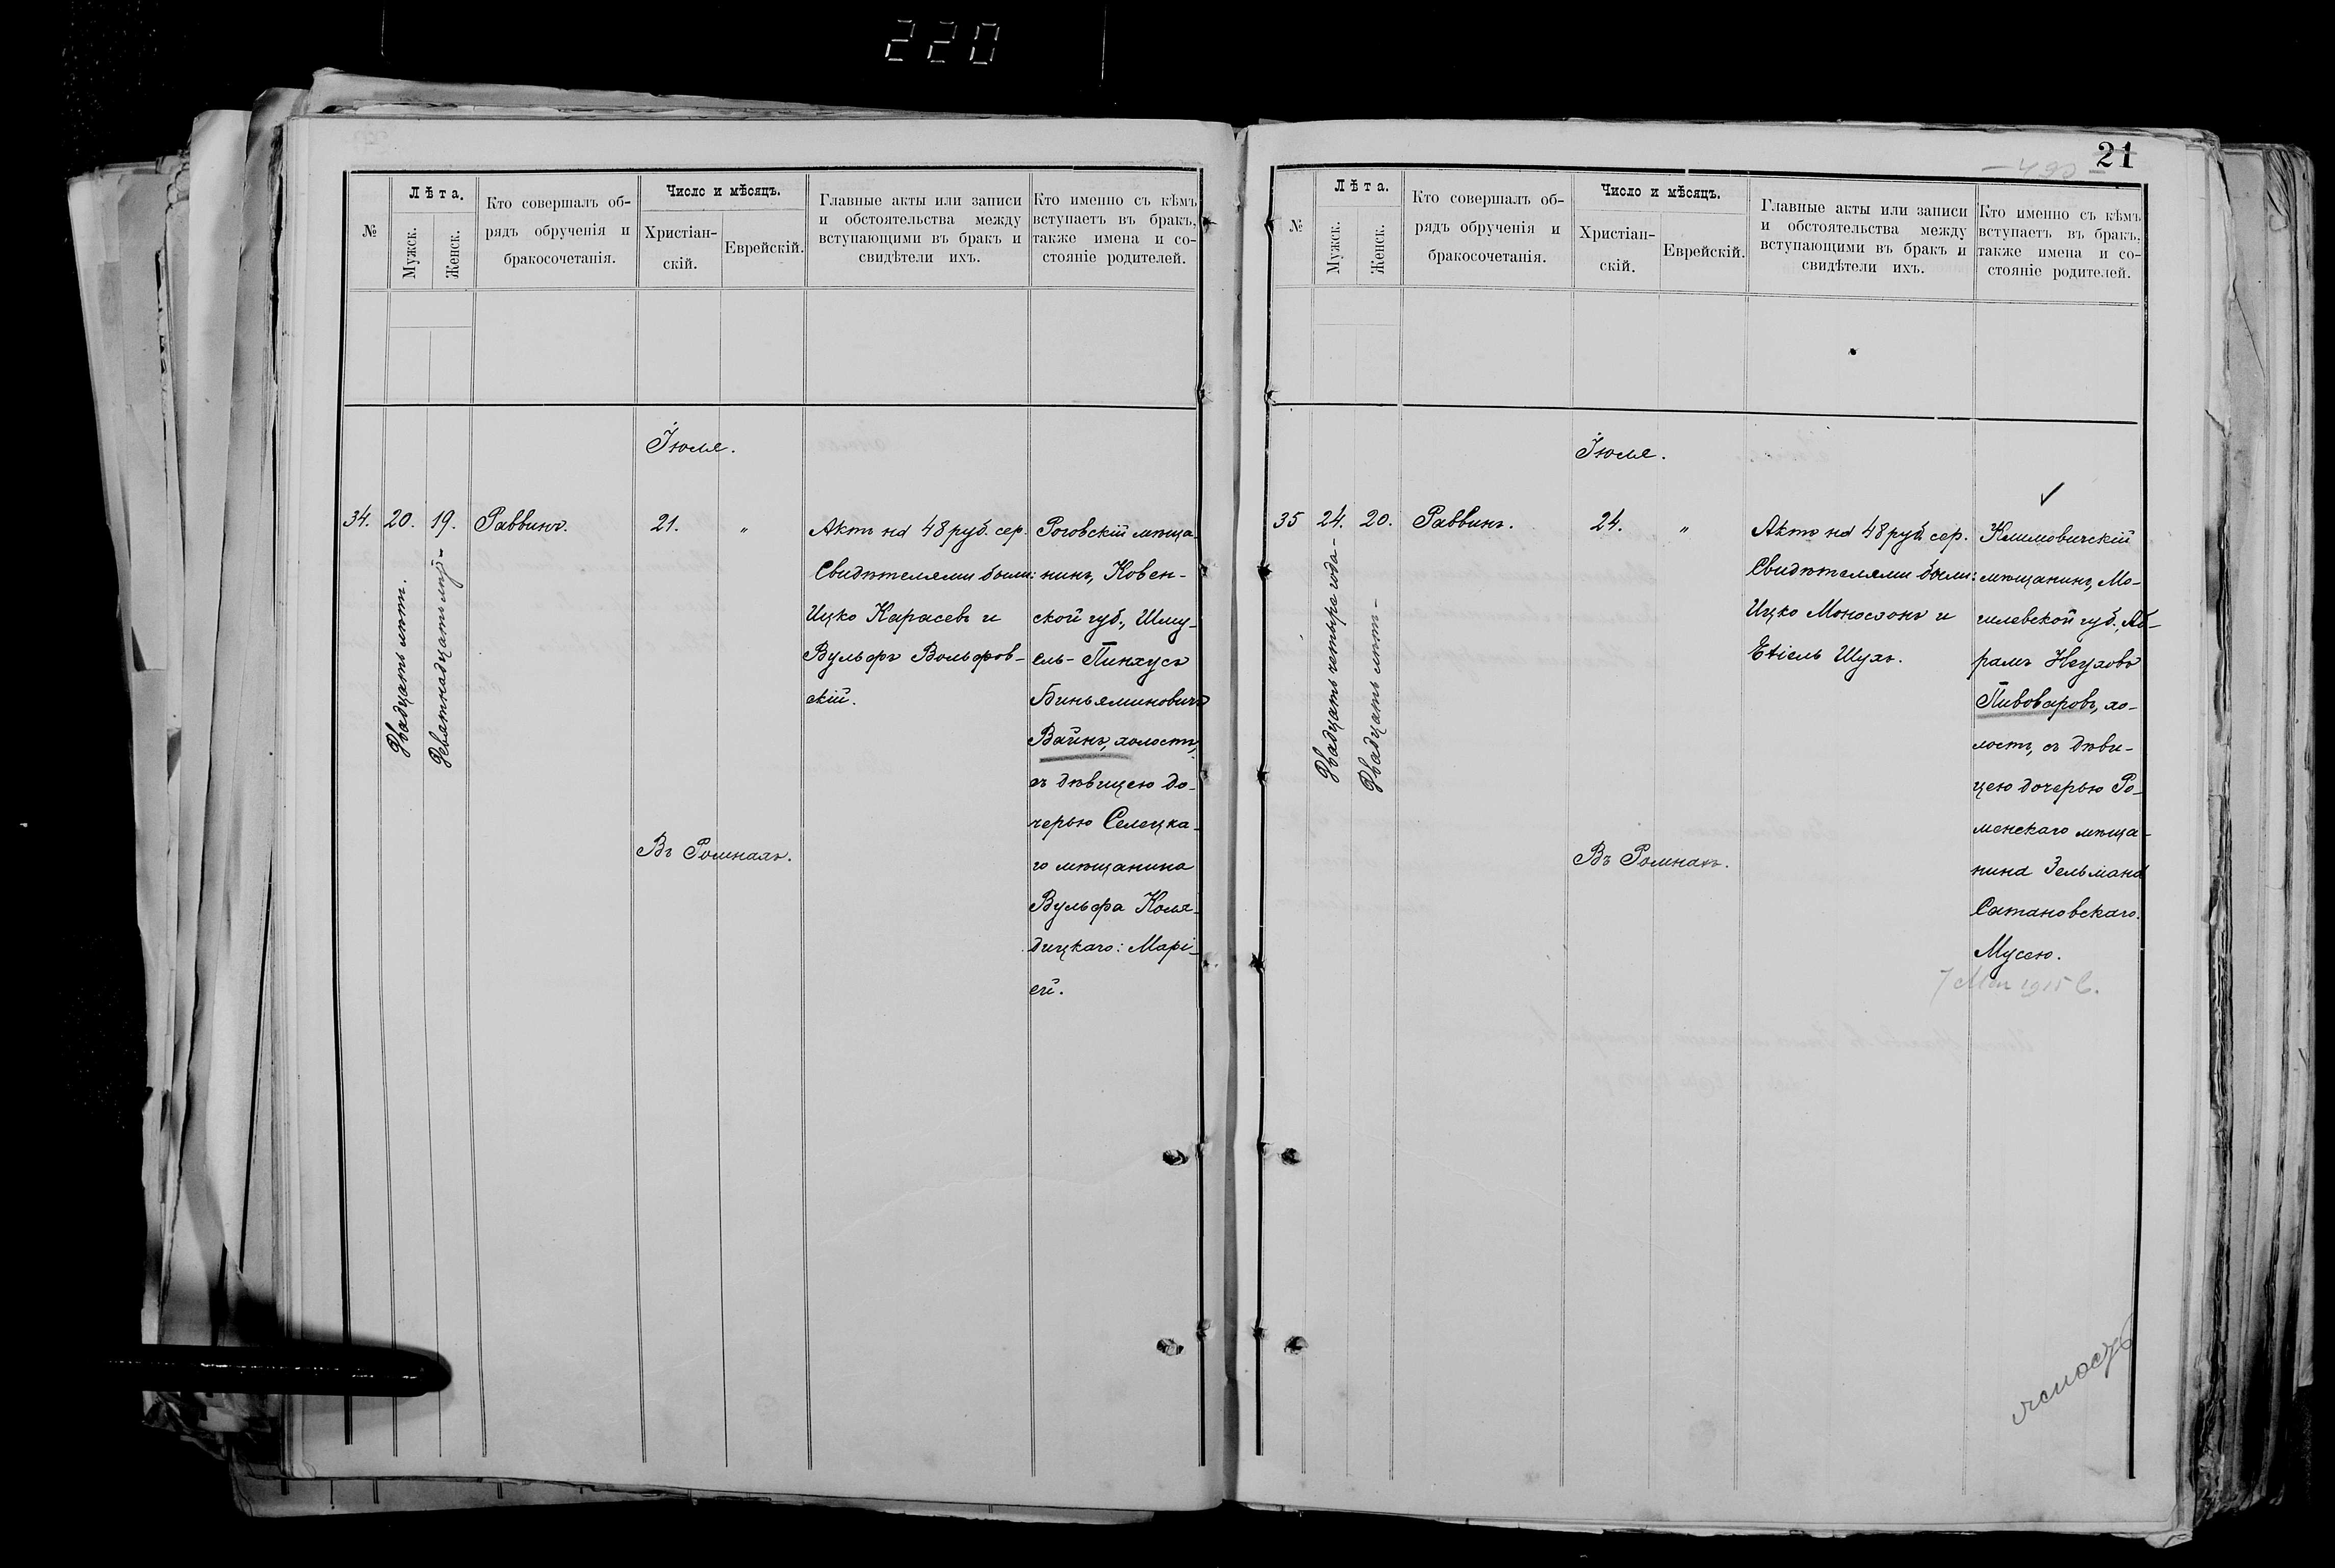 220
Лѣта.
Число и мѣсяцъ.
№
Мужск.
Женск.
Кто совершалъ об-
рядъ обрученія и
бракосочетанія.
Христіан-
скій.
Еврейскій.
Главные акты или записи
и обстоятельства между
вступающими въ бракъ и
свидѣтели ихъ.
Кто именно съ кѣмъ
вступаетъ въ бракъ,
также имена и со-
стояніе родителей.
Іюля.
34.
20.
Двадцать лѣтъ.
19.
Раввинъ.
21.
"
Въ Ромнахъ.
Актъ на 48 руб. сер.
Свидѣтелями были:
Ицко Карасевъ и
Вульфъ Вольфов-
скій.
Роговскій мѣща-
нинъ, Ковен-
ской губ., Шму-
ель-Пинхусъ
Биньяминовичъ
Вайнъ, холостъ,
съ дѣвицею до-
черью Селецка-
го мѣщанина
Вульфа Коля-
дицкаго: Марі-
ей.
21
Лѣта.
Число и мѣсяцъ.
№
Мужск.
Женск.
Кто совершалъ об-
рядъ обрученія и
бракосочетанія.
Христіан-
скій.
Еврейскій.
Главные акты или записи
и обстоятельства между
вступающими въ бракъ и
свидѣтели ихъ.
Кто именно съ кѣмъ
вступаетъ въ бракъ,
также имена и со-
стояніе родителей.
Іюля.
35
24.
Двадцать четыре года-
20.
Двадцать лѣтъ-
Раввинъ.
24.
"
Въ Ромнахъ.
Актъ на 48 руб. сер.
Свидѣтелями были:
Ицко Моносзонъ и
Ехіель Шухъ.
Климовичскій
мѣщанинъ, Мо-
гилевской губ., Аб-
рамъ Неуховъ
Пивоваровъ, хо-
лостъ, съ дѣви-
цею дочерью Ро-
менскаго мѣща-
нина Зельмана
Сатановскаго.
Мусею.